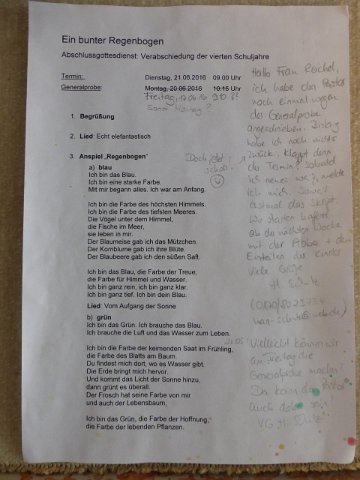 Ein bunter Regenbogen
Abschlussgottesdienst: Verabschiedung der vierten Schuljahre
Termin: Dienstag, 21.06.2016 09.00 Uhr
Generalprobe: Montag, 20.06.2016 10.15 Uhr
Freitag,
1. Begrüßung
2. Lied: Echt elefantastisch
3. Anspiel „Regenbogen“
a) blau
Ich bin das Blau.
Ich bin eine starke Farbe.
Mit mir begann alles. Ich war am Anfang.
Ich bin die Farbe des höchsten Himmels.
Ich bin die Farbe des tiefsten Meeres.
Die Vögel unter dem Himmel,
die Fische im Meer,
sie leben in mir.
Der Blaumeise gab ich das Mützchen.
Der Kornblume gab ich ihre Blüte.
Der Blaubeere gab ich den süßen Saft.
Ich bin das Blau, die Farbe der Treue,
die Farbe für Himmel und Wasser.
Ich bin ganz rein, ich bin ganz klar.
Ich bin ganz tief. Ich bin dein Blau.
Lied: Vom Aufgang der Sonne
b) grün
Ich bin das Grün. Ich brauche das Blau.
Ich brauche die Luft und das Wasser zum Leben.
Ich bin die Farbe der keimenden Saat im Frühling,
die Farbe des Blatts am Baum.
Du findest mich dort, wo es Wasser gibt.
Die Erde bringt mich hervor.
Und kommt das Licht der Sonne hinzu,
dann grünt es überall.
Der Frosch hat seine Farbe von mir
und auch der Lebensbaum.
Ich bin das Grün, die Farbe der Hoffnung,
die Farbe der lebenden Pflanzen.
Hallo Frau
ich habe den
noch einmal wegen
der Generalprobe
angeschrieben. Bislang
habe ich noch nichts
zurück. Klappt denn
der Termin? Sobald
ich neues weiß, melde
ich mich. Soweit
erstmal das Skript.
Wir starten
ab der nächsten Woche
mit der Probe + dem
Einteilen der Kinder
Viele Grüße
Vielleicht können wir
am Freitag die
Generalprobe machen?
Da kann der
auch dabei sein
VG